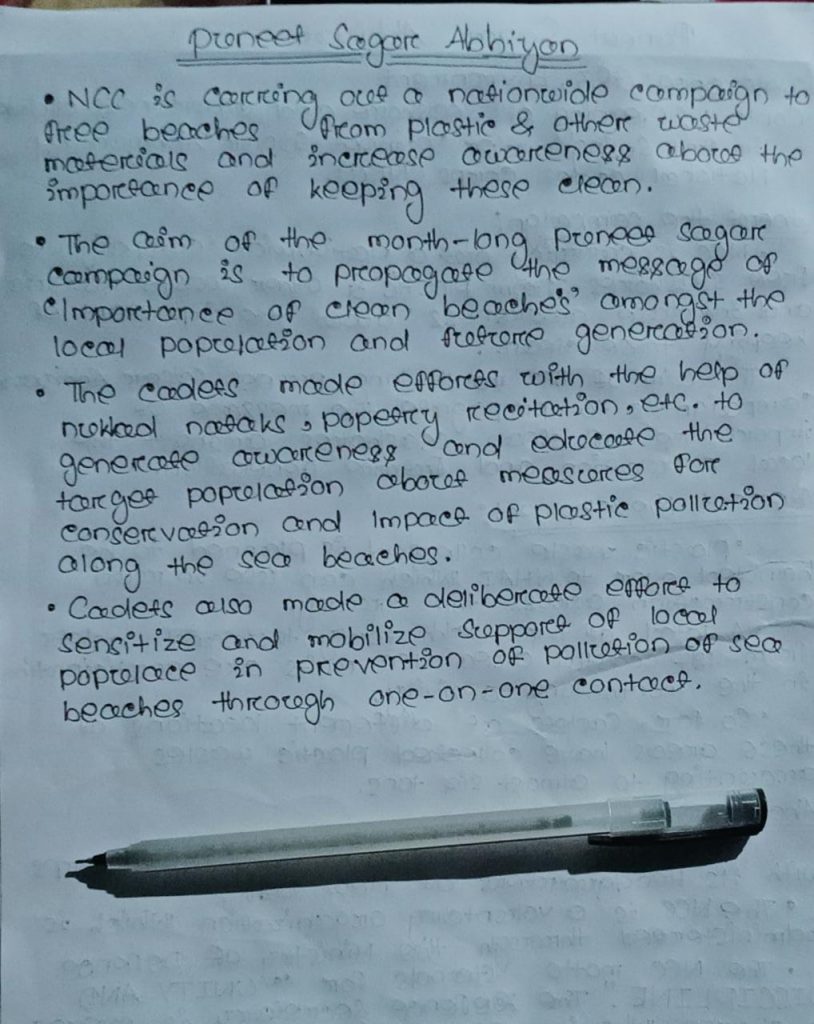 Puneet Sagar Abhiyan
• NCC is carring out a nationwide campaign to
free beaches from plastic & other waste
materials and increase awareness about the
importance of keeping these clean.
• The aim of the month-long puneet sagar
campaign is to propagate the message of
'Importance of clean beaches' amongst the
local population and future generation.
• The cadets made efforts with the help of
nukkad nataks, popetry recitation, etc. to
generate awareness and educate the
target population about measures for
conservation and impact of plastic pollution
along the sea beaches.
• Cadets also made a deliberate effort to
sensitize and mobilize support of local
populace in prevention of pollution of sea
beaches through one-on-one contact.